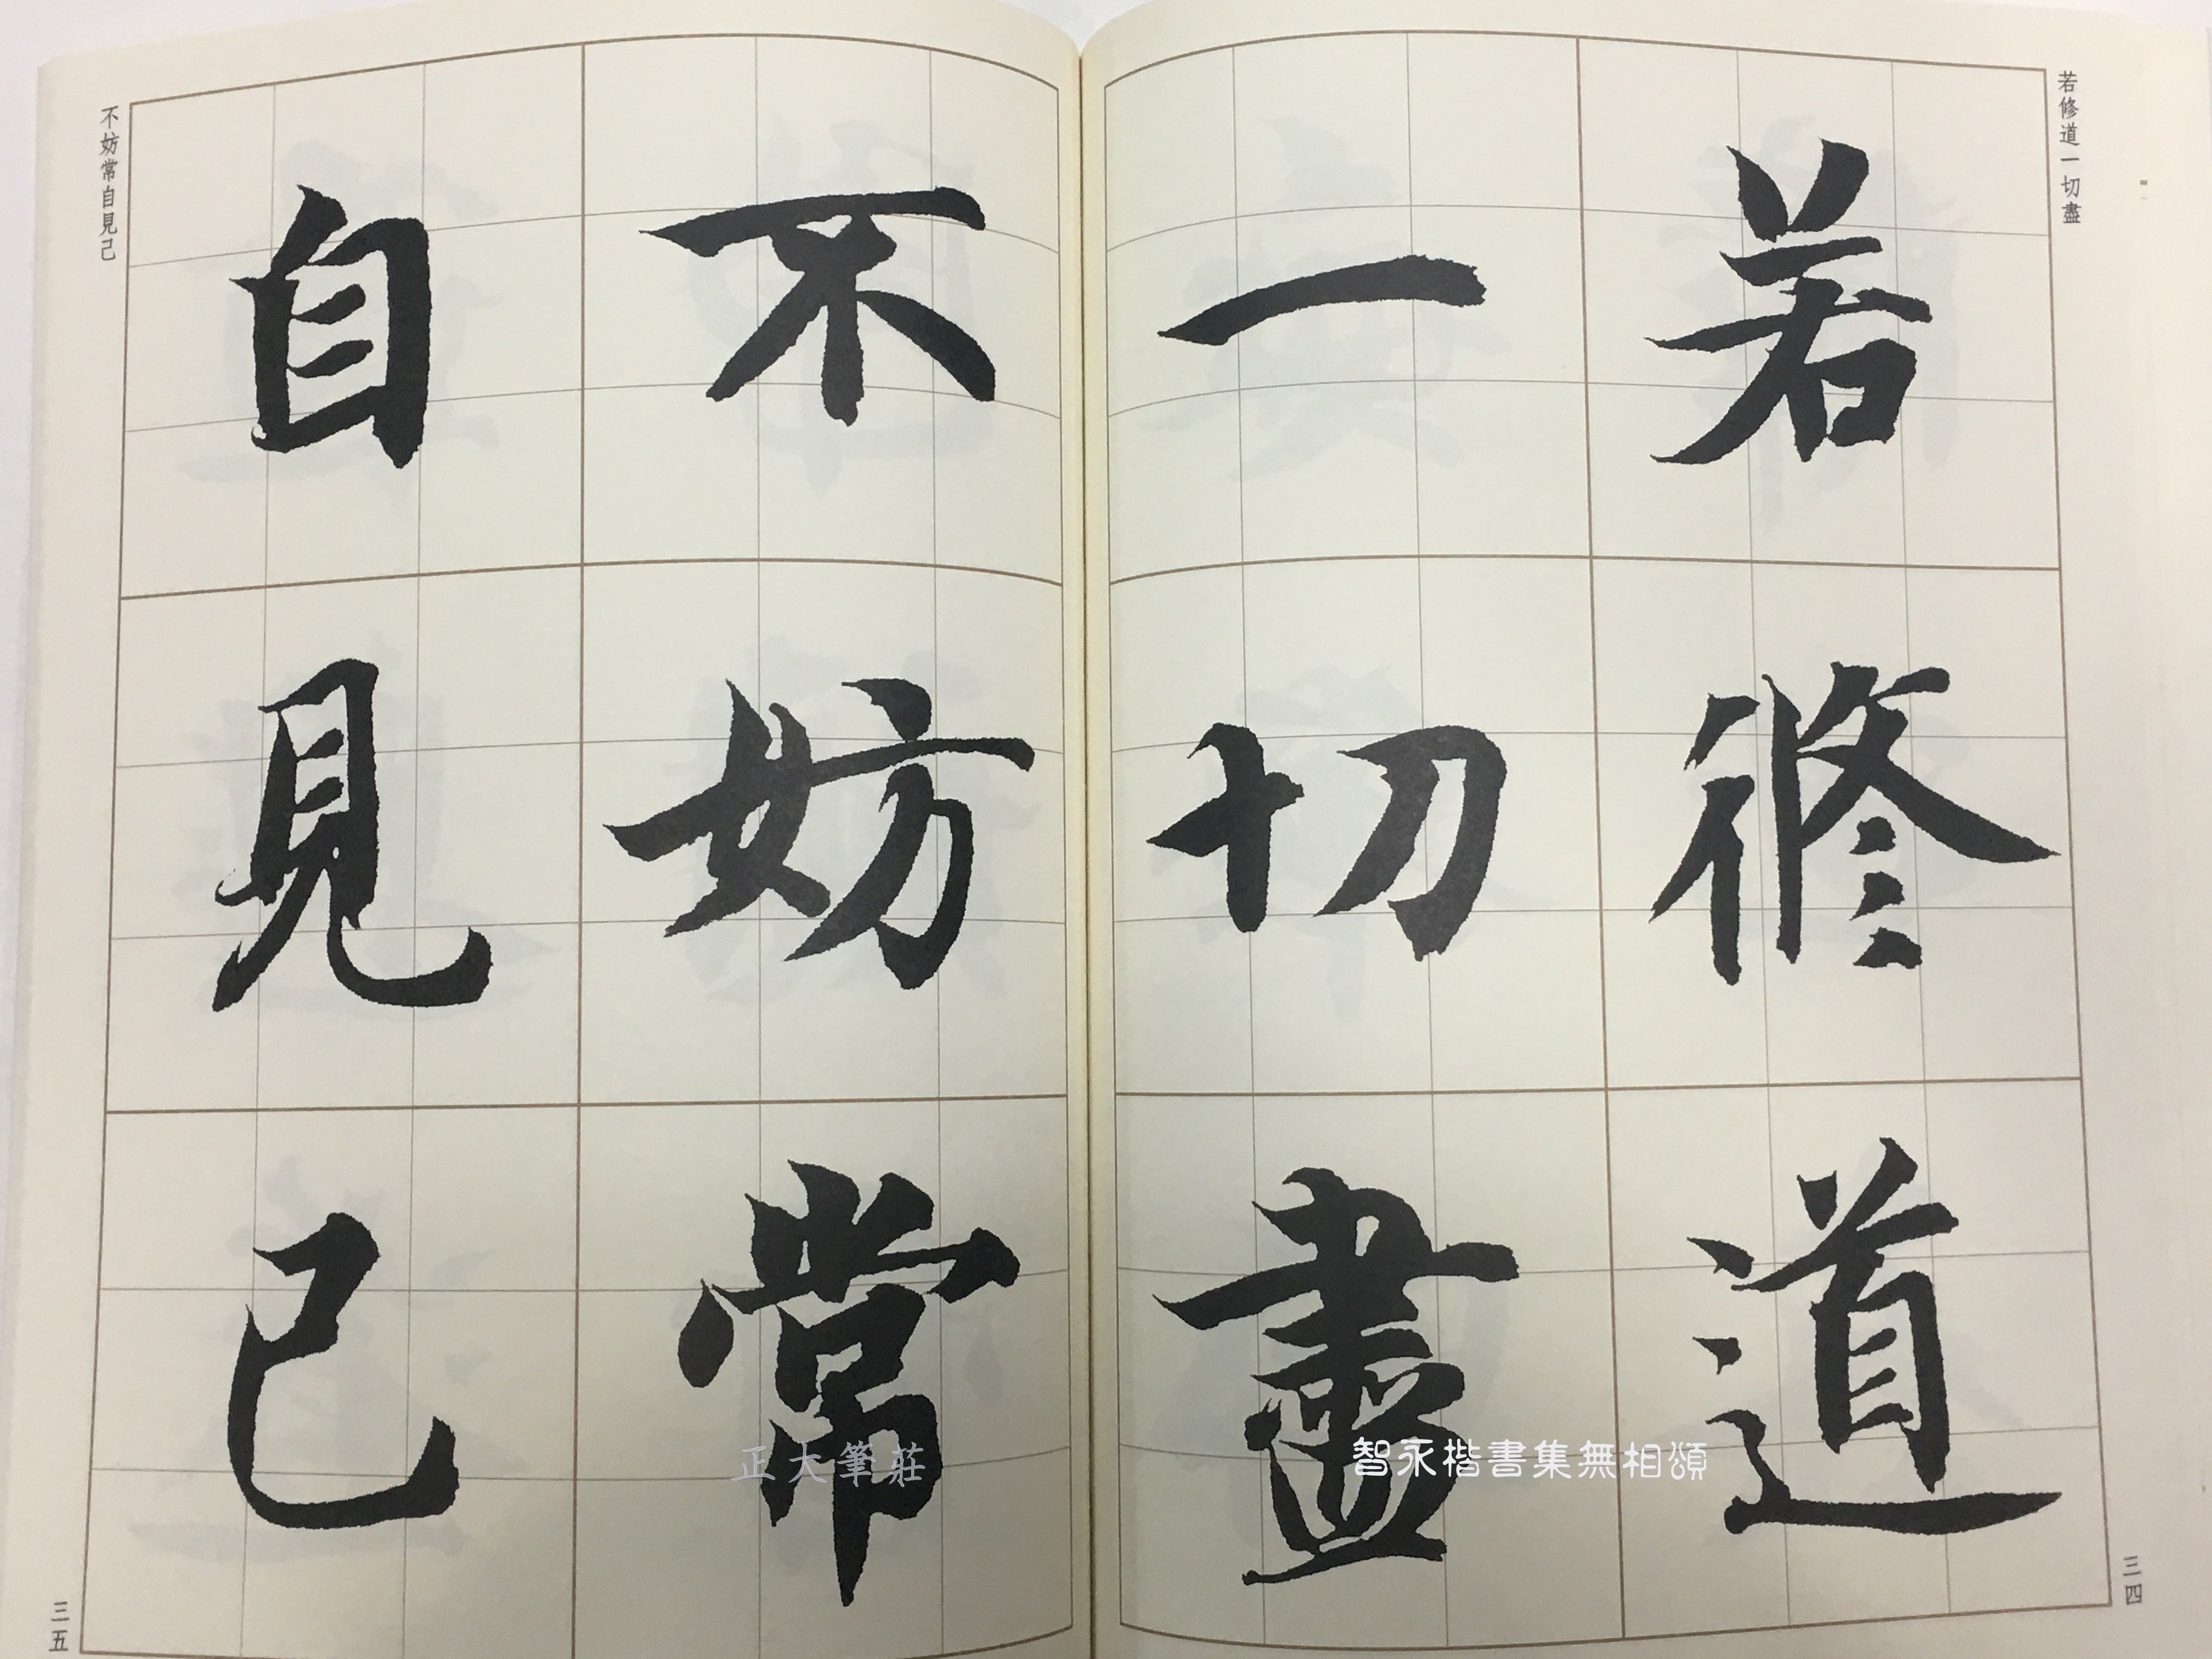 若修道一切盡
若修道
一切盡
三四
不妨常
自見己
不妨常自見己
三五
智永楷書集無相頌
正大筆莊